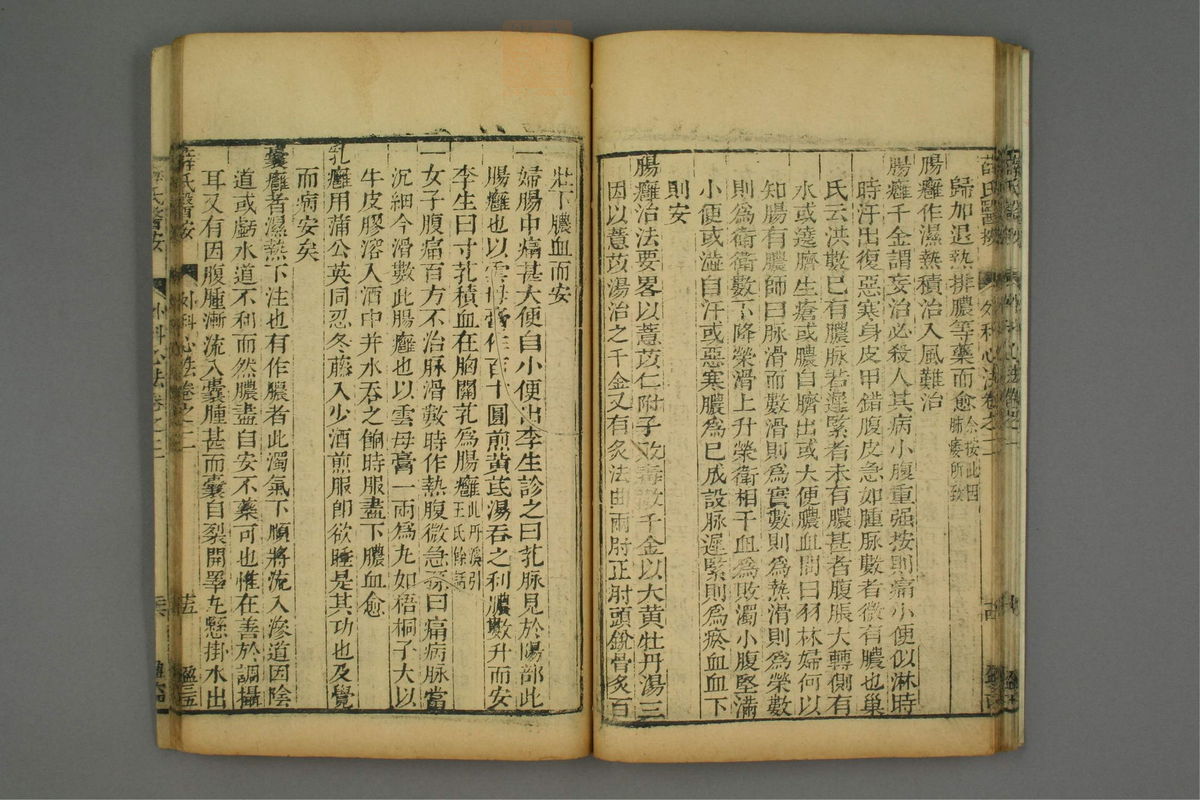 薛氏醫按 外科心法卷之二
歸加退熱排膿等藥而愈 余按此因肺痿所致
腸癰作濕熱積治入風難治
腸癰千金謂妄治必殺人其病小腹重强按則痛小便似淋時
時汗出復惡寒身皮甲錯腹皮急如腫脉數者微有膿也巢
氏云洪數已有膿脉若遲緊者未有膿甚者腹脹大轉側有
水或遶臍生瘡或膿自臍出或大便膿血問曰羽林婦何以
知腸有膿師曰脉滑而數滑則爲實數則爲熱滑則爲榮數
則爲衛衛數下降榮滑上升榮衛相干血爲敗濁小腹堅滿
小便或澁自汗或惡寒膿爲已成設脉遲緊則爲瘀血血下
則安
腸癰治法要畧以薏苡仁附子敗毒散千金以大黄牡丹湯三
因以薏苡湯治之千金又有灸法曲兩肘正肘頭銳骨灸百
壯下膿血而安
一婦腸中痛甚大便自小便出李生診之曰芤脉見於陽部此
腸癰也以雲母膏作百十圓煎黄芪湯吞之利膿數升而安
李生曰寸芤積血在胸關芤爲腸癰 此丹溪引王氏餘話
一女子腹痛百方不治脉滑數時作熱腹微急孫曰痛病脉當
沉細今滑數此腸癰也以雲母膏一兩爲丸如梧桐子大以
牛皮膠溶入酒中并水吞之餉時服盡下膿血愈
乳癰用蒲公英同忍冬藤入少酒煎服即欲睡是其功也及覺
而病安矣
囊癰者濕熱下注也有作膿者此濁氣下順將流入滲道因陰
道或虧水道不利而然膿盡自安不藥可也惟在善於調攝
耳又有因腹腫漸流入囊腫甚而囊自裂開睪丸懸掛水出
薛氏醫按 外科心法卷之二